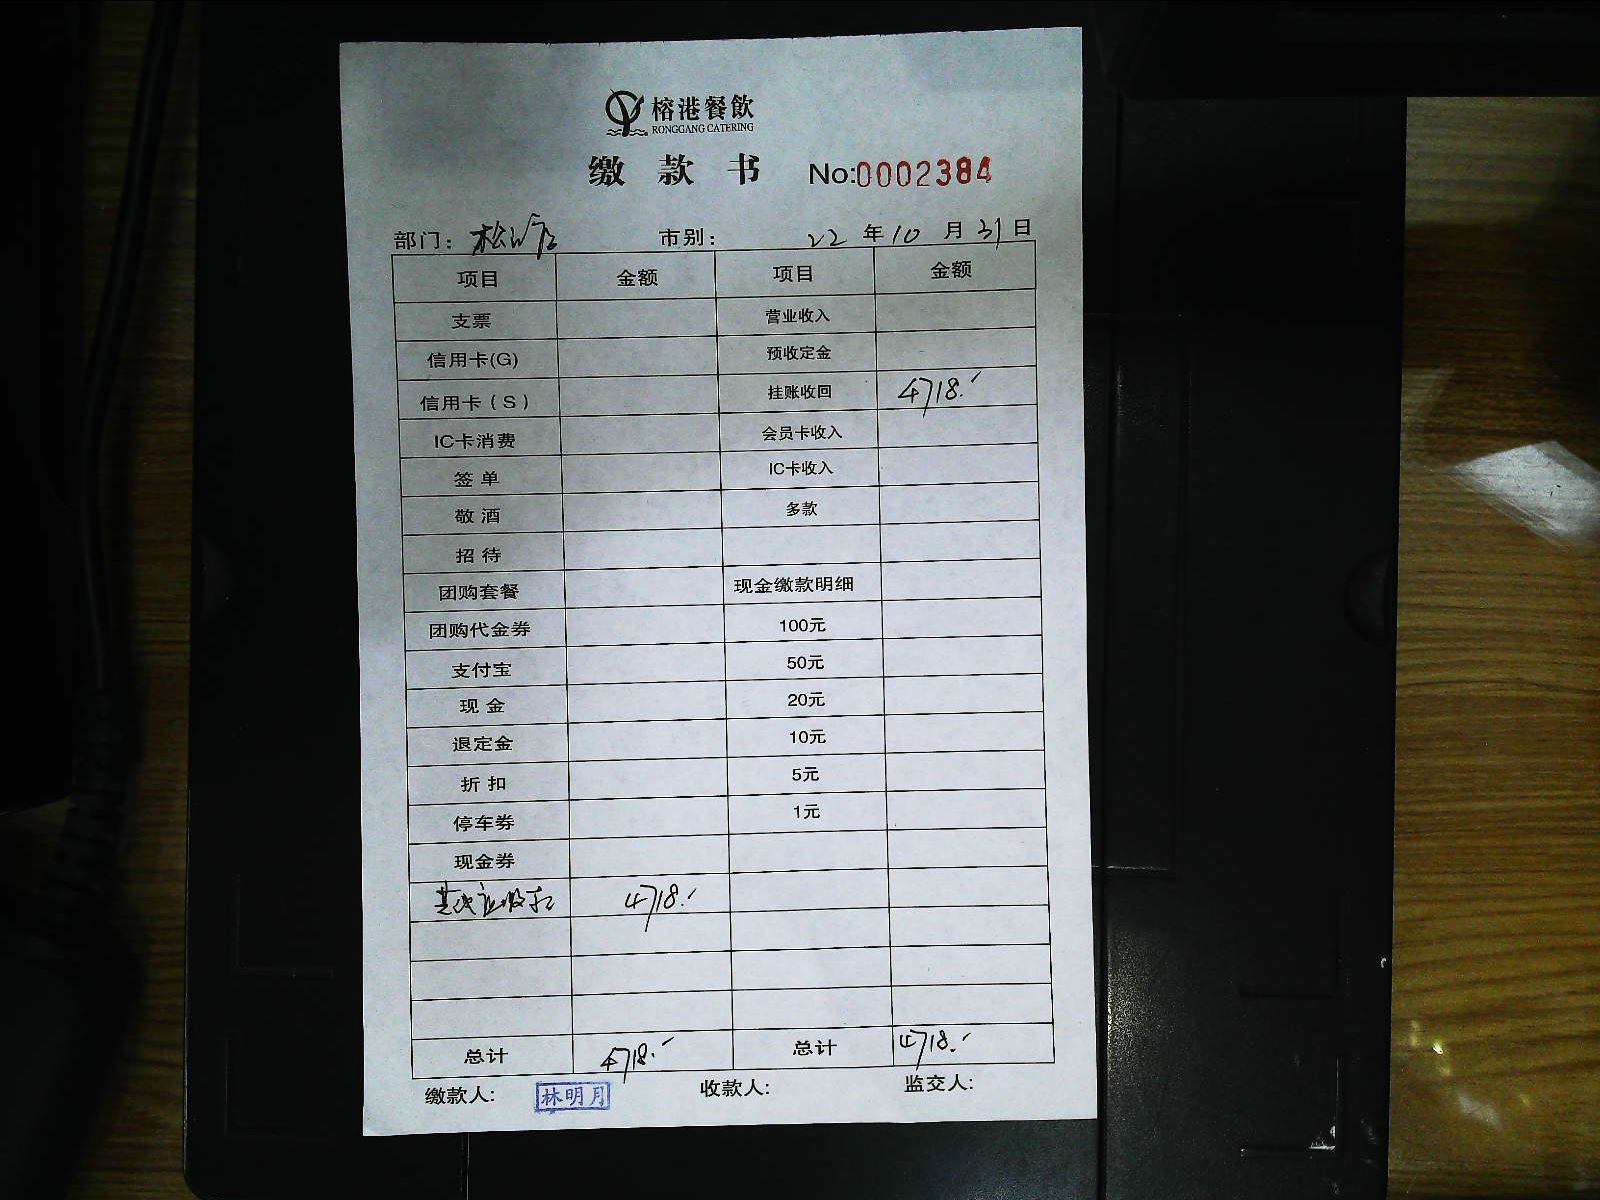 榕港餐飲
RONGGANG CATERING
缴款书 No:0002384
部门: 市别: 22年10月31日
项目 金额 项目 金额
支票 营业收入
信用卡(G) 预收定金
信用卡(S) 挂账收回 4718.-
IC卡消费 会员卡收入
签单 IC卡收入
敬酒 多款
招待
团购套餐 现金缴款明细
团购代金券 100元
支付宝 50元
现金 20元
退定金 10元
折扣 5元
停车券 1元
现金券
4718.-
总计 4718.- 总计 4718.-
缴款人: 林明月 收款人: 监交人: